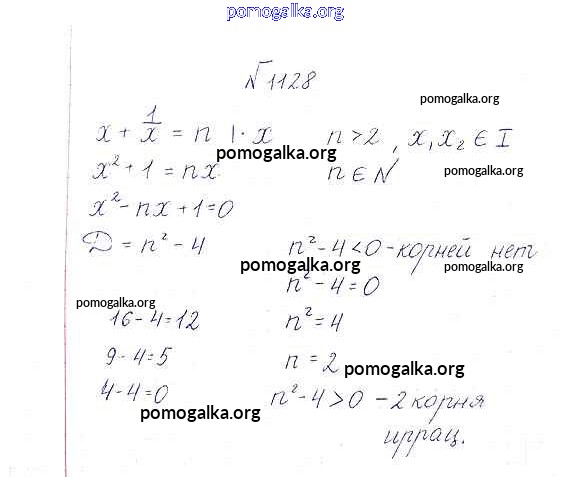 pomogalka.org
№1128
pomogalka.org
x + 1/x = n | · x     n > 2, x₁x₂ ∈ I
pomogalka.org
x² + 1 = nx     n ∈ N
pomogalka.org
x² - nx + 1 = 0
D = n² - 4     n² - 4 < 0 - корней нет
pomogalka.org pomogalka.org
n² - 4 = 0
pomogalka.org
16 - 4 = 12     n² = 4
9 - 4 = 5     n = 2
pomogalka.org
4 - 4 = 0     n² - 4 > 0 - 2 корня
pomogalka.org
иррац.